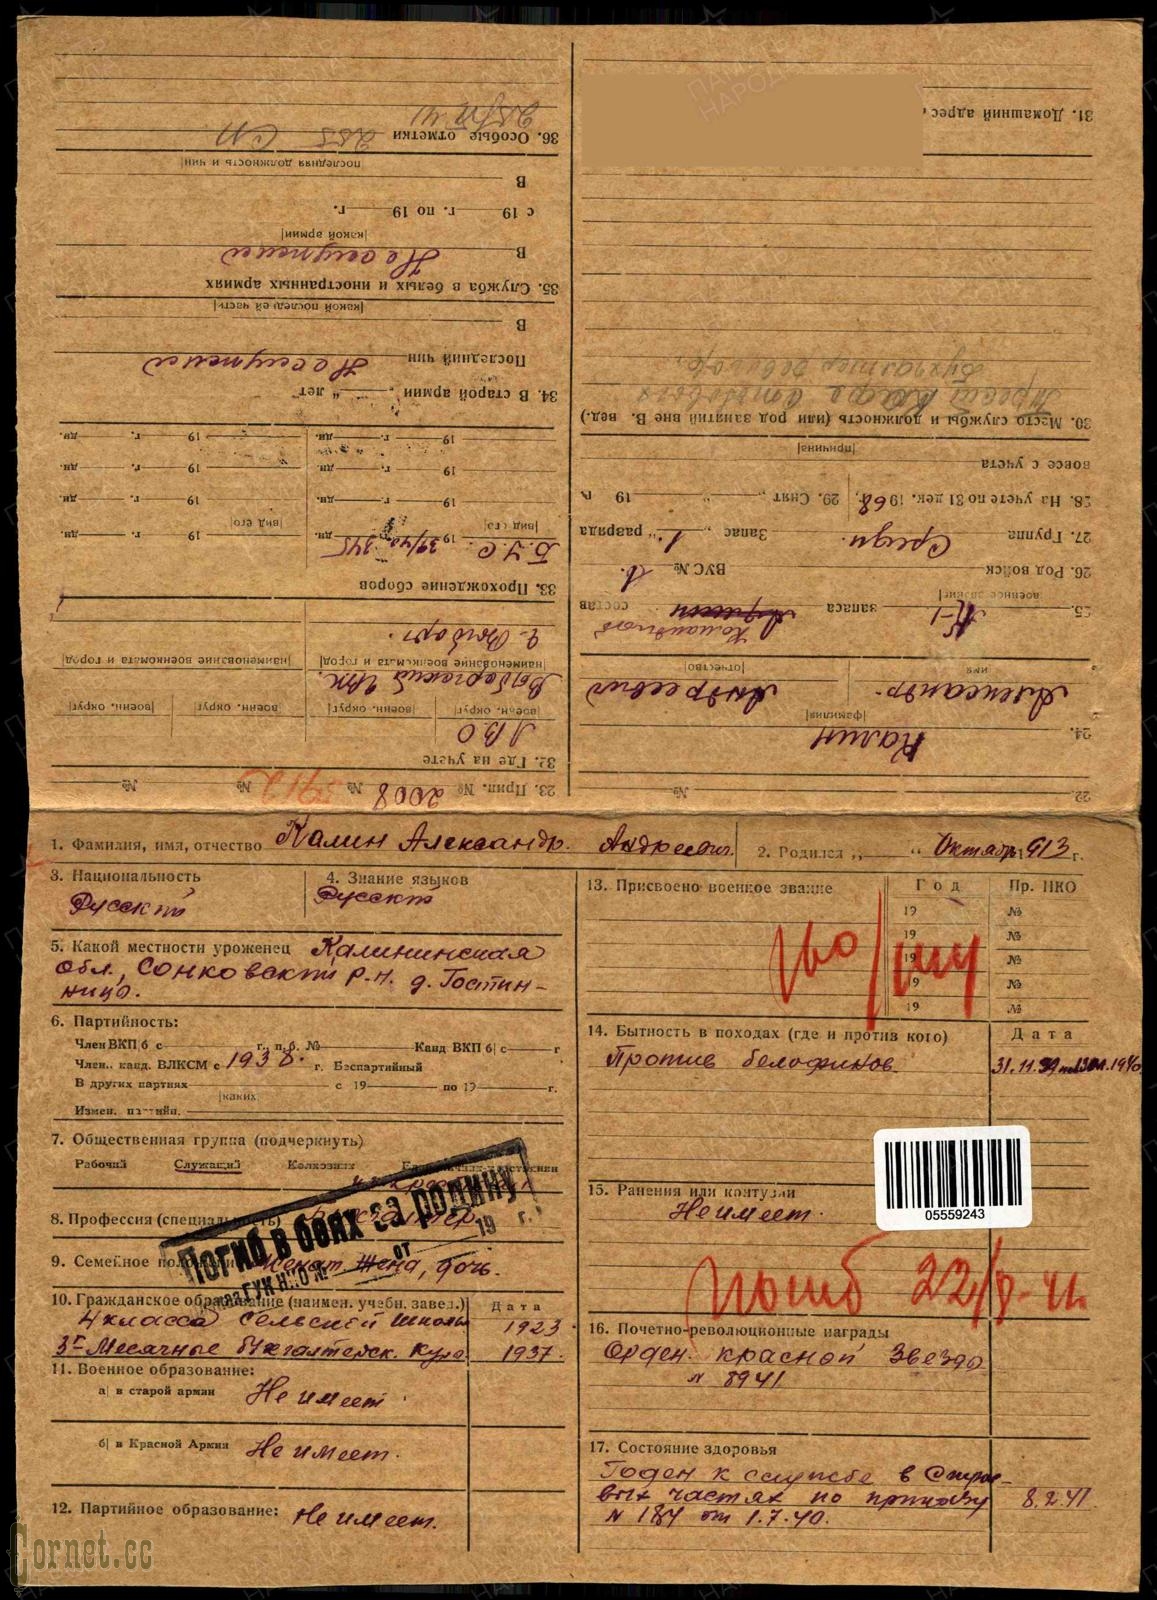 1. Фамилия, имя, отчество Калин Александр. Андреевич. 2. Родился „ “ Октябрь 1913 г.
3. Национальность 4. Знание языков
Русский Русский
5. Какой местности уроженец Калининская
обл., Сонковский р-н. д. Гостин-
ницо.
6. Партийность:
Член ВКП б с г., п. б. № Канд ВКП б| с г
Член., канд. ВЛКСМ с 1938. г. Беспартийный
В других партиях с 19 по 19 г.
|каких
Измен. партийн.
7. Общественная группа (подчеркнуть)
Рабочий Служащий Колхозник
8. Профессия (специальность) Бухгалтер.
9. Семейное положение Женат Жена, дочь.
10. Гражданское образование (наимен. учебн. завед.) Дата
4 класса Сельской школы 1923.
3х Месячные бухгалтерск. курс. 1937.
11. Военное образование:
а| в старой армии Не имеет.
б| в Красной Армии Не имеет.
12. Партийное образование: Не имеет.
Погиб в боях за родину
приказ ГУК НКО № от 19 г.
13. Присвоено военное звание Год Пр. НКО
19 №
19 №
19 №
19 №
19 №
14. Бытность в походах (где и против кого) Дата
Против белофинов. 31.11.39
15. Ранения или контузии
Не имеет.
05559243
погиб 22/8-41.
16. Почетно-революционные награды
Орден красной Звезда
№ 8941
17. Состояние здоровья
Годен к службе в Строе-
вых частях по приказу 8.2.41.
№ 184 от 1.7.40.
22. №
23. Прип. № 2008 № 5912 № №
24. Калин
|фамилия|
Александр. Андреевич
имя |отчество|
25. К-1 запаса Командный состав
военное зван|
26. Род войск ВУС № 1.
27. Группа Средн. Запас „ 1. “ разряда
28. На учете по 31 дек. 1968, 29. Снят „ “ 19 г.
вовсе с учета
|причина|
30. Место службы и должность (или род занятий вне В. вед.)
Трест Кафе столовых
Бухгалтер ревизор.
31. Домашний адрес
32. Где на учете
ЛВО
военн. округ| |военн. округ| военн. округ| |военн. округ|
Выборгский
наименование военкомата и город |наименование военкомата и город|
г. Выборг.
33. Прохождение сборов
Б.У.С. 1939/40 345 дн. 19 г. дн.
|вид его| |вид его|
19 г. дн. 19 г. дн.
19 г. дн. 19 г. дн.
19 г. дн. 19 г. дн.
34. В старой армии „ “ лет
Последний чин Не служил
В
|какой последней части|
35. Служба в белых и иностранных армиях
В Не служил
|какой армии|
с 19 г. по 19 г.
В
последняя должность и чин
36. Особые отметки 255 СП
ПАМЯТЬ НАРОДА
Cornet.cc